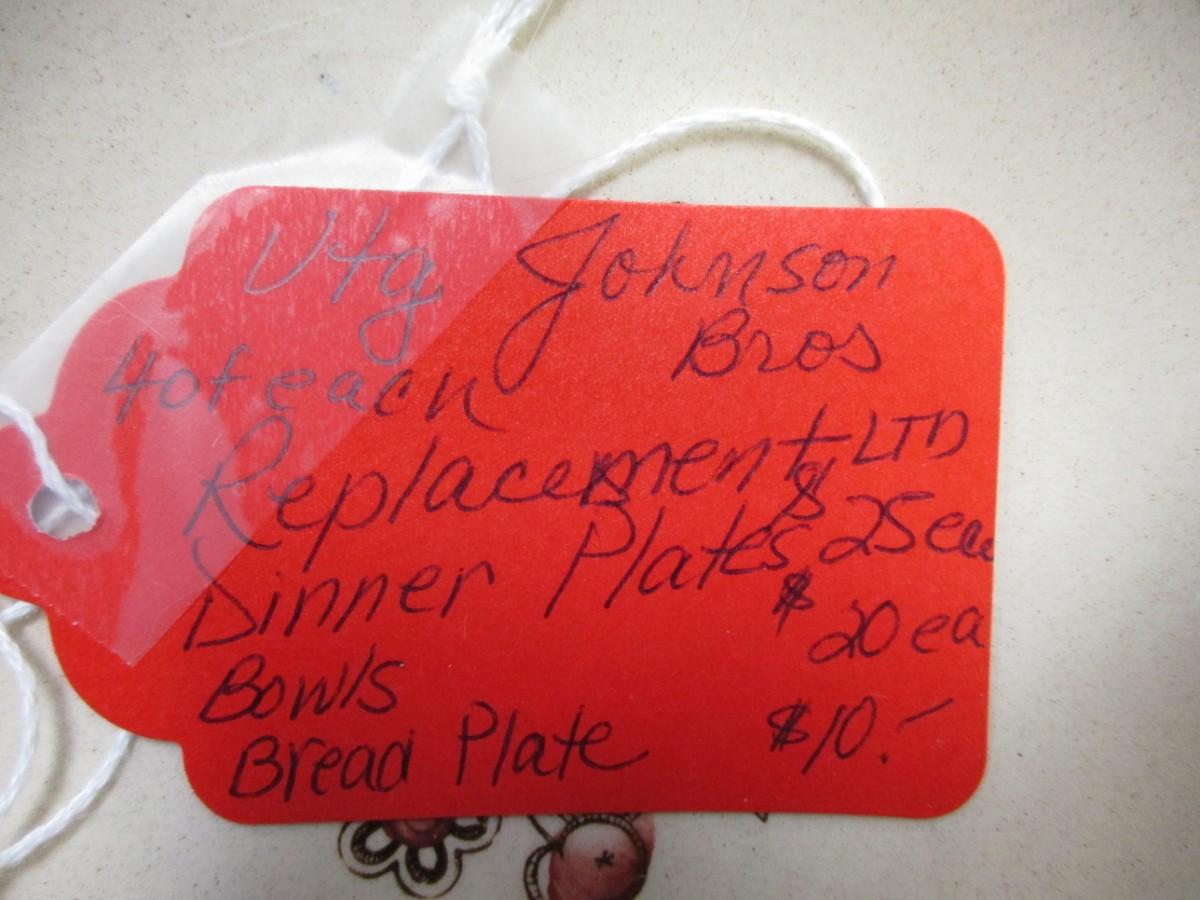 Vtg Johnson
Bros
4 of each
Replacement LTD
Dinner Plates $25 ea
Bowls $20 ea
Bread Plate $10.-